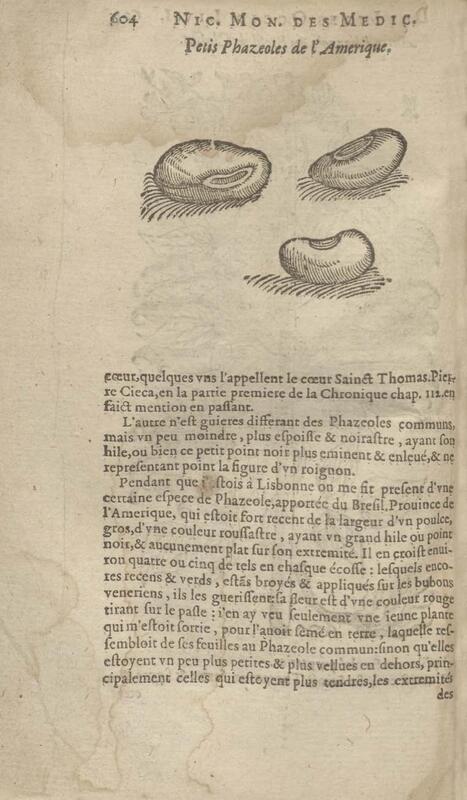 604 NIC. MON. DES MEDIC.
Petis Phazeoles de l'Amerique.
cœur, quelques vns l'appellent le cœur Sainct Thomas. Pier-
re Cieca, en la partie premiere de la Chronique chap. 112. en
faict mention en passant.
L'autre n'est guieres differant des Phazeoles communs,
mais vn peu moindre, plus espoisse & noirastre, ayant son
hile, ou bien ce petit point noir plus eminent & enleué, & ne
representant point la figure d'vn roignon.
Pendant que i'estois à Lisbonne on me fit present d'vne
certaine espece de Phazeole, apportée du Bresil, Prouince de
l'Amerique, qui estoit fort recent de la largeur d'vn poulce,
gros, d'vne couleur roussastre, ayant vn grand hile ou point
noir, & aucunement plat sur son extremité. Il en croist enui-
ron quatre ou cinq de tels en chasque écosse: lesquels enco-
res recens & verds, estās broyés & appliqués sur les bubons
veneriens, ils les guerissent: sa fleur est d'vne couleur rouge
tirant sur le pasle: i'en ay veu seulement vne ieune plante
qui m'estoit sortie, pour l'auoir semé en terre, laquelle res-
sembloit de ses feuilles au Phazeole commun: sinon qu'elles
estoyent vn peu plus petites & plus vellues en dehors, prin-
cipalement celles qui estoyent plus tendres, les extremités
des